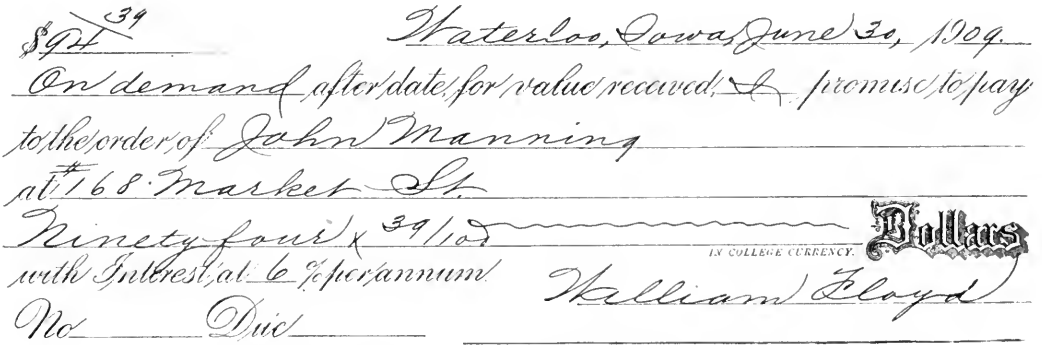 $94 39 Waterloo, Iowa, June 30, 1909.
On demand after date, for value received, I promise to pay
to the order of John Manning
at #168 Market St.
Ninety four x 39/100 Dollars
IN COLLEGE CURRENCY.
with Interest, at 6 % per annum
William Floyd
No Due